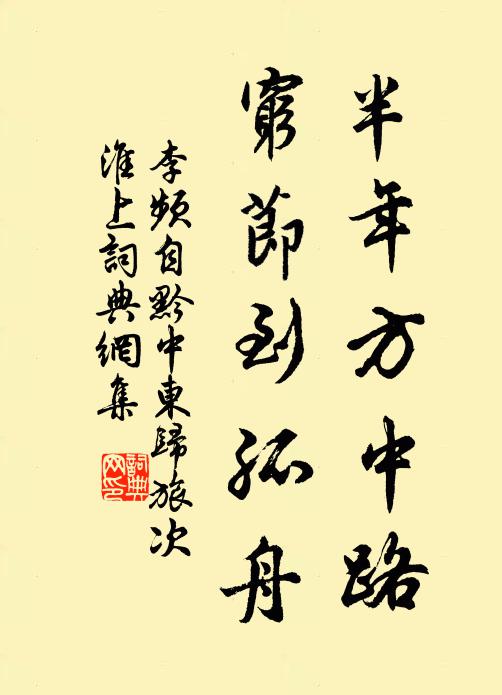 半年方中路
窮節到孤舟
李頻自黔中東歸旅次
淮上詞典網集
詞典
网印